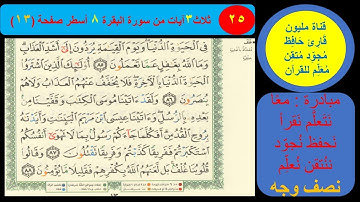 ٢٥
ثلاث٣ آيات من سورة البقرة ٨ أسطر صفحة (١٣)
قناة مليون
قارئ حافظ
مُجوّد مُتقن
مُعلّم للقرآن
فِي الْحَيَاةِ الدُّنْيَا وَيَوْمَ الْقِيَامَةِ يُرَدُّونَ إِلَىٰ أَشَدِّ الْعَذَابِ
وَمَا اللَّهُ بِغَافِلٍ عَمَّا تَعْمَلُونَ ٨٥
الْحَيَاةَ الدُّنْيَا بِالْآخِرَةِ فَلَا يُخَفَّفُ عَنْهُمُ الْعَذَابُ وَلَا هُمْ
يُنصَرُونَ ٨٦ وَلَقَدْ آتَيْنَا مُوسَى الْكِتَابَ وَقَفَّيْنَا مِن
بِرُوحِ الْقُدُسِ أَفَكُلَّمَا جَاءَكُمْ رَسُولٌ بِمَا لَا تَهْوَىٰ أَنفُسُكُمُ
اسْتَكْبَرْتُمْ فَفَرِيقًا كَذَّبْتُمْ وَفَرِيقًا تَقْتُلُونَ ٨٧ وَقَالُوا
قُلُوبُنَا غُلْفٌ بَل لَّعَنَهُمُ اللَّهُ بِكُفْرِهِمْ فَقَلِيلًا مَّا يُؤْمِنُونَ ٨٨
مبادرة : معًا
نَتَعلّم نَقرأ
نَحفظ نُجوّد
نُتقن نُعلّم
نصف وجه